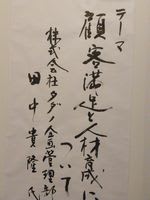 テーマ
顧客満足と人材育成に
ついて
株式会社タダノ企画管理部
田中貴隆氏